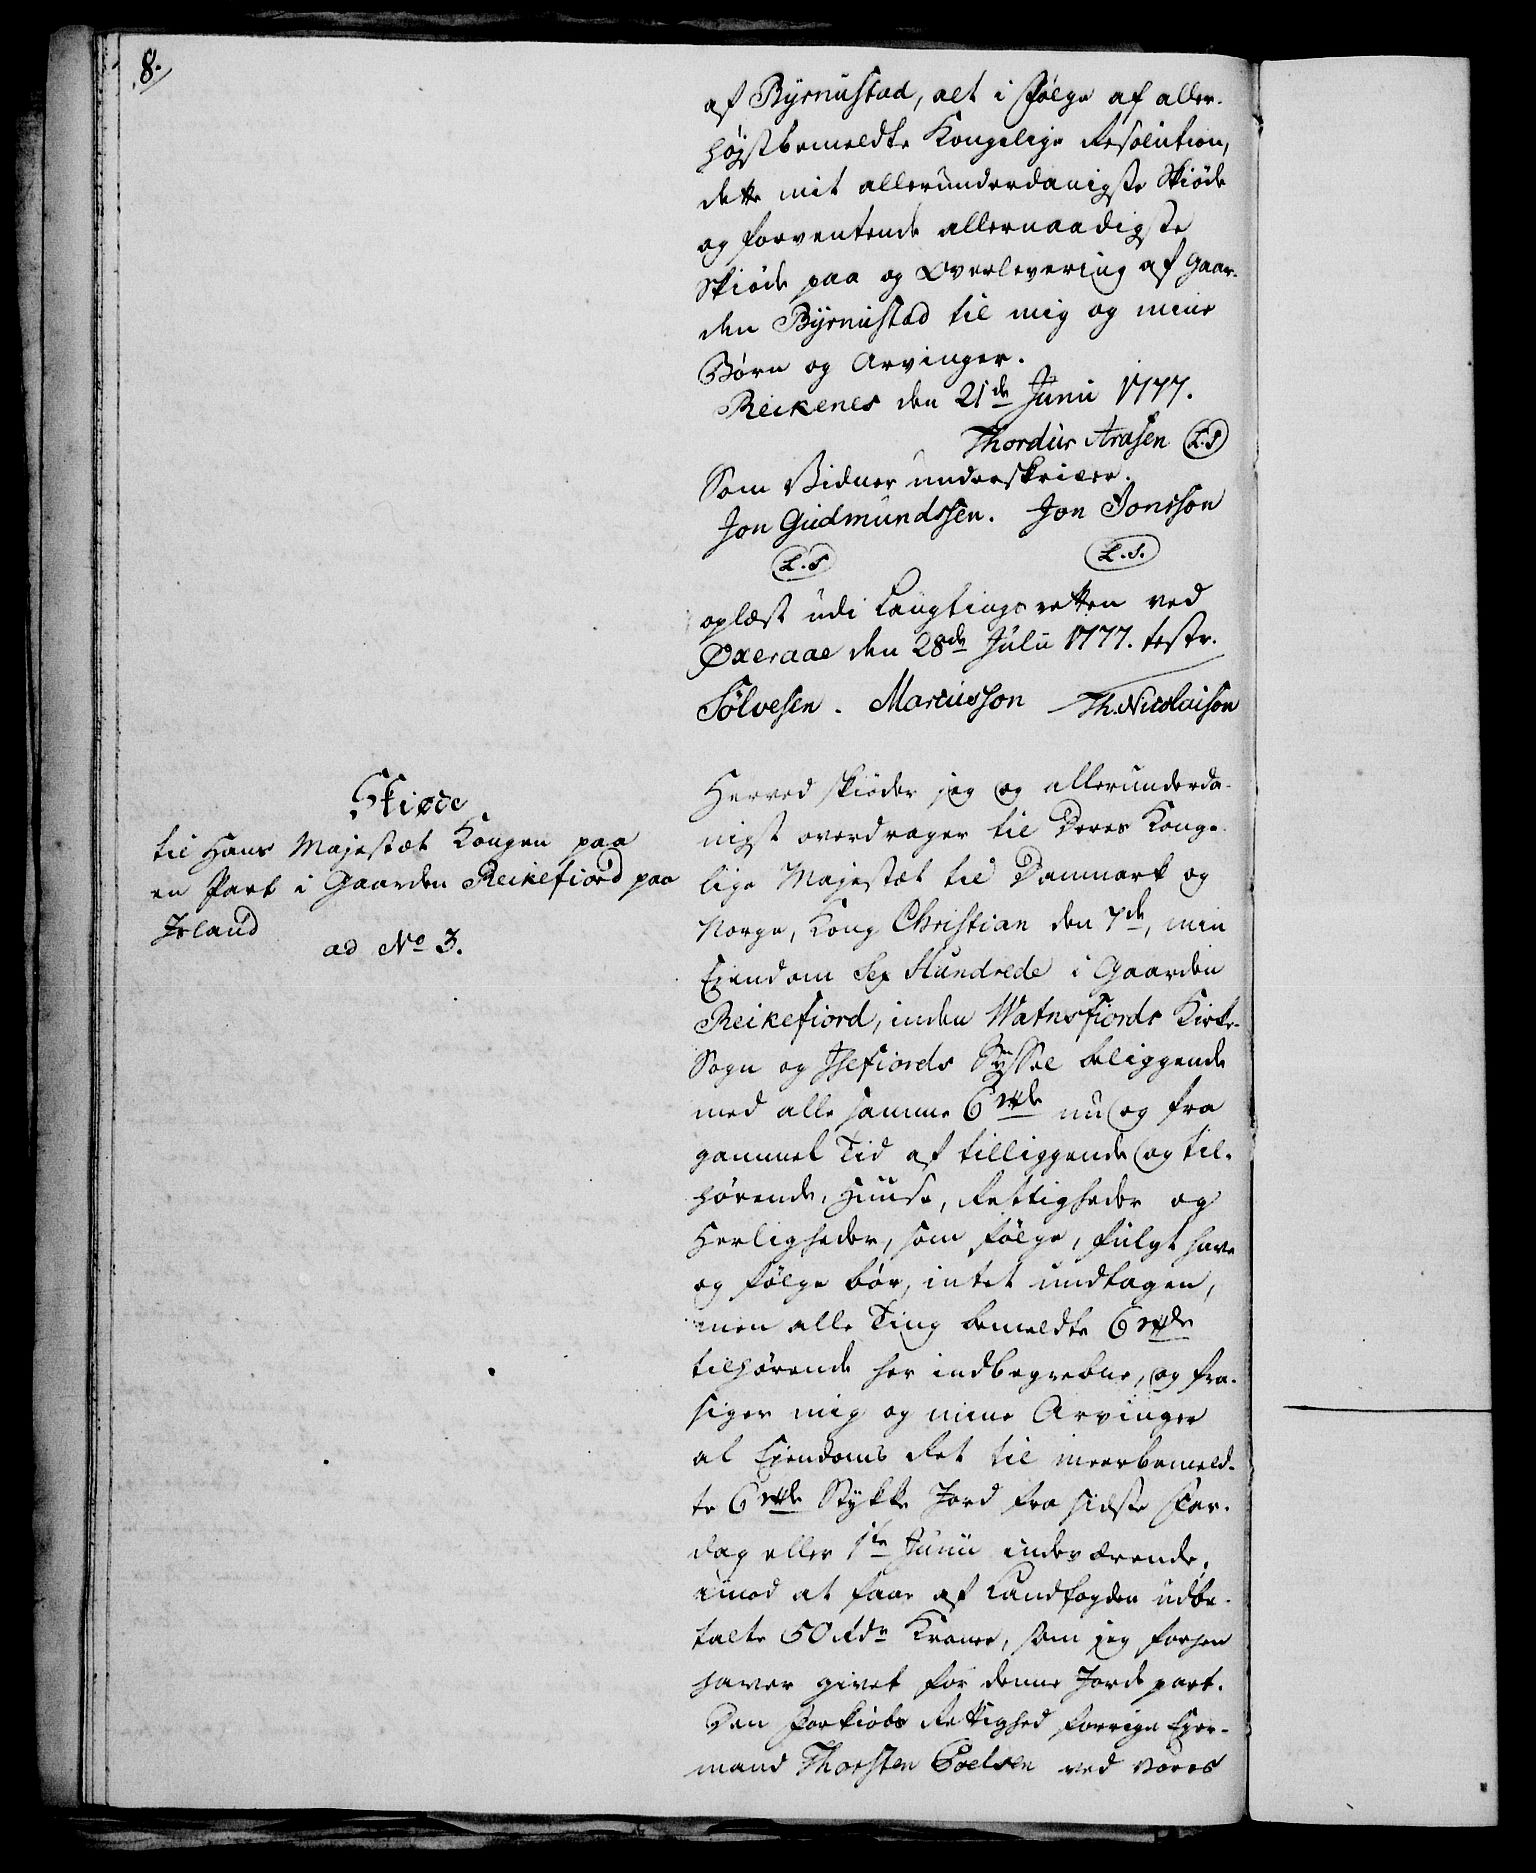 8.
af Byrnustad, alt i Følge af aller-
højstbemeldte Kongelige Resolution,
dette mit allerunderdanigste Skiöde
og forventende allernaadigste
Skiöde paa og Overlevering af Gaar-
den Byrnustad til mig og mine
Børn og Arvinger.
Reikenes den 21de Junii 1777.
Thordur Arasen L.S
Som Vidner underskriver.
Jon Gudmundssen. Jon Jonsson
L.S L.S.
oplæst udi Laugtingsretten ved
Øxeraae den 28de Julii 1777. testr.
Sölvesen. Marcusson Th. Nicolaison
Skiøde
til Hans Majestæt Kongen paa
en Part i Gaarden Reikefiord paa
Island
ad No 3.
Herved skiöder jeg og allerunderda-
nigst overdrager til Deres Konge-
lige Majestæt til Danmark og
Norge, Kong Christian den 7de, min
Ejendom Sex Hundrede i Gaarden
Reikefiord, inden Watnsfiords Kirke-
Sogn og Isefiords Syssel beliggende
med alle samme 6 nu og fra
gammel Tid af tilliggende og til-
hørende, Huuse, Rettigheder og
Herligheder, som følge, fulgt have
og følge bör, intet undtagen,
men alle Ting bemeldte 6
tilhørende her indbegrebne, og fra-
siger mig og mine Arvinger
al Ejendoms Ret til meerbemeld-
te 6 Stykke Jord fra sidste Far-
dag eller 1te Junii indeværende,
imod at faae af Landfogden udbe-
talte 50 Rdr Kroner, som jeg forhen
haver givet for denne Jorde part.
Den Forkiöbs Rettighed forrige Ejer-
mand Thorsten Poelsen ved vores